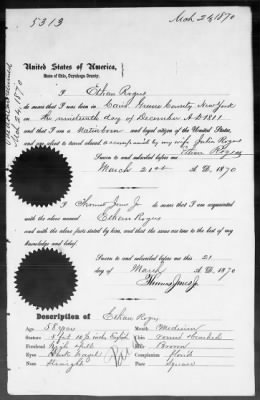 5313
Mch 24, 1870
United States of America,
State of Ohio, Cuyahoga County.
I Ethan Rogers
do swear that I was born in Cairo Greene County New York
on the nineteenth day of December A.D. 1811
and that I am a Native born and legal citizen of the United States,
and am about to travel abroad accompanied by my wife Julia Rogers
Ethan Rogers
Sworn to and subscribed before me
March 21st A.D. 1870
I Thomas Jones Jr do swear that I am acquainted
with the above named Ethan Rogers
and with the above facts stated by him, and that the same are true to the best of my
knowledge and belief.
Thomas Jones Jr.
Sworn to and subscribed before me this 21
day of March A.D. 1870
Description of Ethan Rogers
Age 58 years
Mouth Medium
Stature 5 feet 10 1/2 inches English
Chin round
Forehead high
Hair Brown
Eyes Dark hazel
Complexion florid
Nose Straight
Face Square
Mch 24, 1870